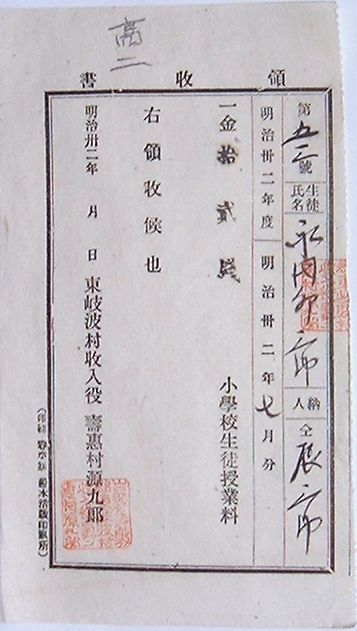 高二
領收書
第五三號 生徒氏名 永田卯三郎 納人 仝 辰三郎
明治卅二年度 明治卅二年七月分
一金拾貳戔 小學校生徒授業料
右領收候也
明治卅二年 月 日 東岐波村收入役 壽惠村源九郎